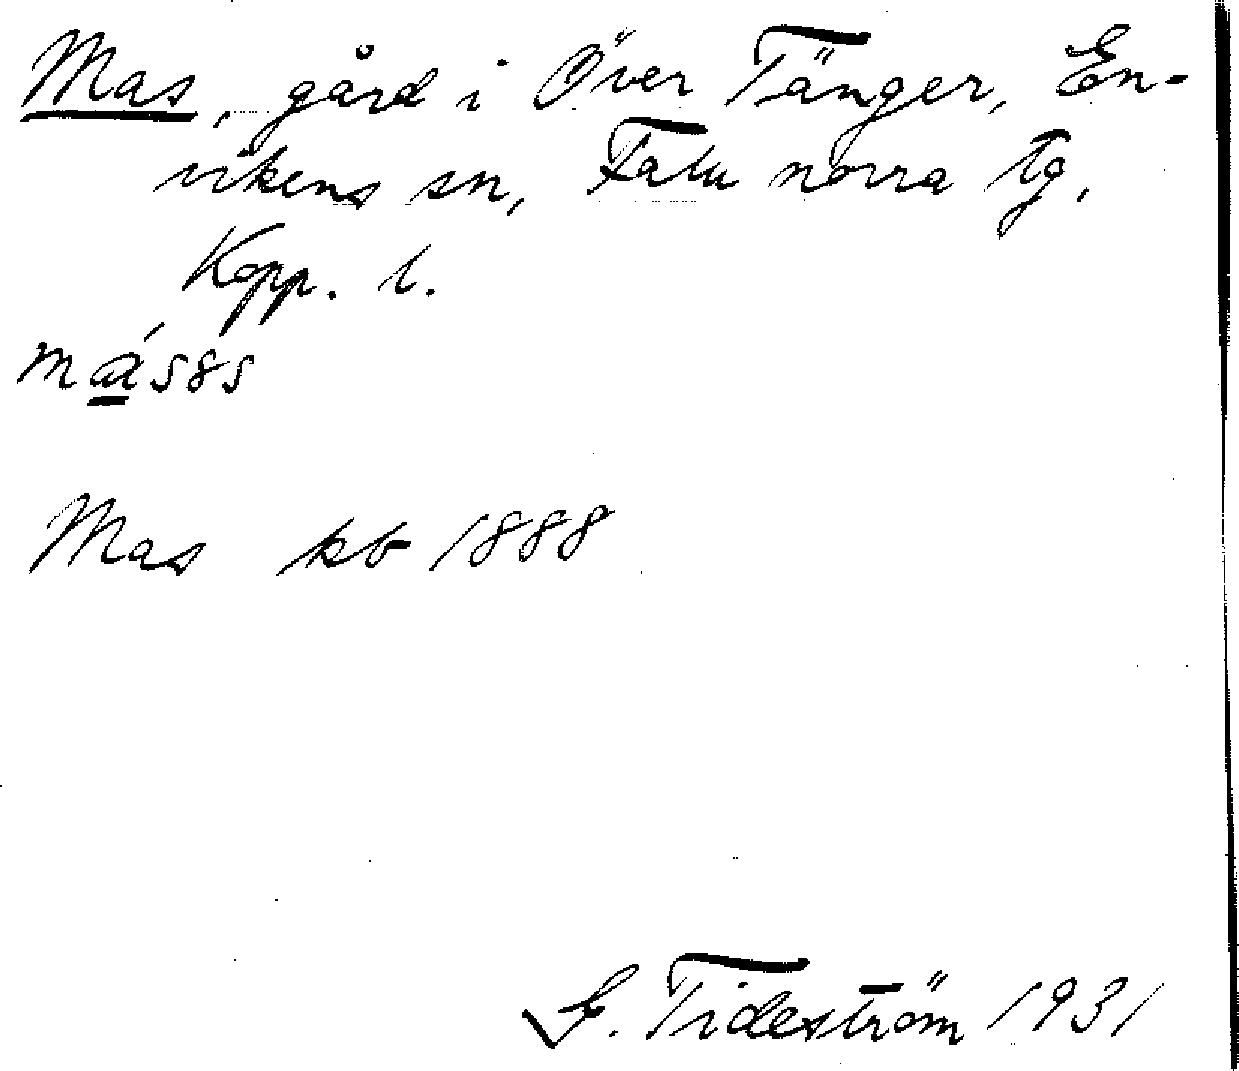 Mas, gård i Över Tänger, En-
vikens sn, Falu norra tg,
Kopp. l.
Mas kb 1888
G. Tideström 1931